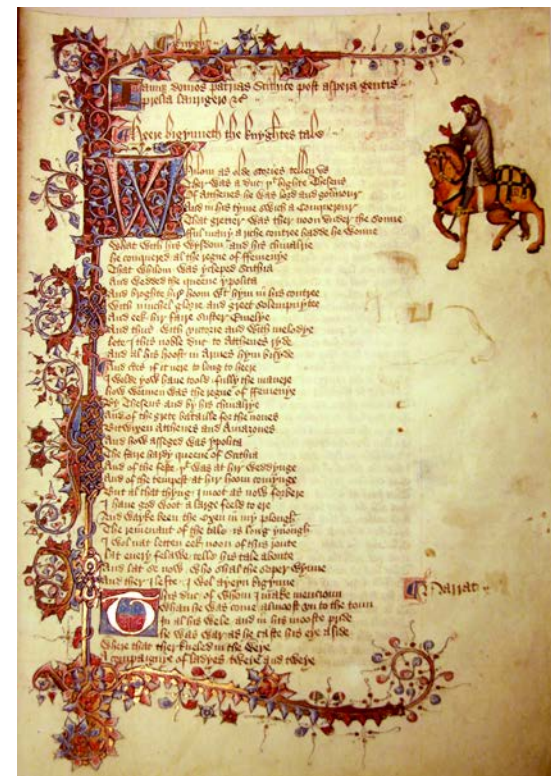 Knyght
Iamque domos patrias Scithice post aspera gentis
prelia laurigero &c
Heere bigynneth the knyghtes tale
Whilom as olde stories tellen us
Ther was a duc þt highte Theseus
Of Atthenes he was lord and gouernour
And in his tyme swich a Conquerour
That gretter was ther noon vnder the sonne
fful many a riche contree hadde he wonne
What with his wysdom and his chiualrie
He conquered al the regne of ffemenye
That whilom was ycleped Scithia
And wedded the queene ypolita
And broghte hir hoom wt hym in his contree
With muchel glorie and greet solempnytee
And eek hir faire suster Emelye
And thus with victorie and with melodye
lete I this noble duc to Atthenes ryde
And al his hoost in Armes hym bisyde
And certes if it nere to long to heere
I wolde yow haue toold fully the manere
how wonnen was the regne of ffemenye
By Theseus and by his chiualrye
And of the grete bataille for the nones
Bitwixen Atthenes and Amazones
And how asseged was ypolita
The faire hardy queene of Scithia
And of the feste þt was at hir weddynge
And of the tempest at hir hoom comynge
But al that thyng I moot as now forbere
I haue god woot a large feeld to ere
And wayke been the oxen in my plough
The remenant of the tale is long ynough
I wol nat letten eek noon of this route
lat euery felawe telle his tale aboute
And lat se now who shal the soper wynne
And ther I lefte I wol ayeyn bigynne
This duc of whom I make mencioun
Whan he was come almoost vn to the toun
In al his wele and in his mooste pryde
he was war as he caste his eye aside
Where that ther kneled in the weye
A compaignye of ladyes tweye and tweye
Narrat